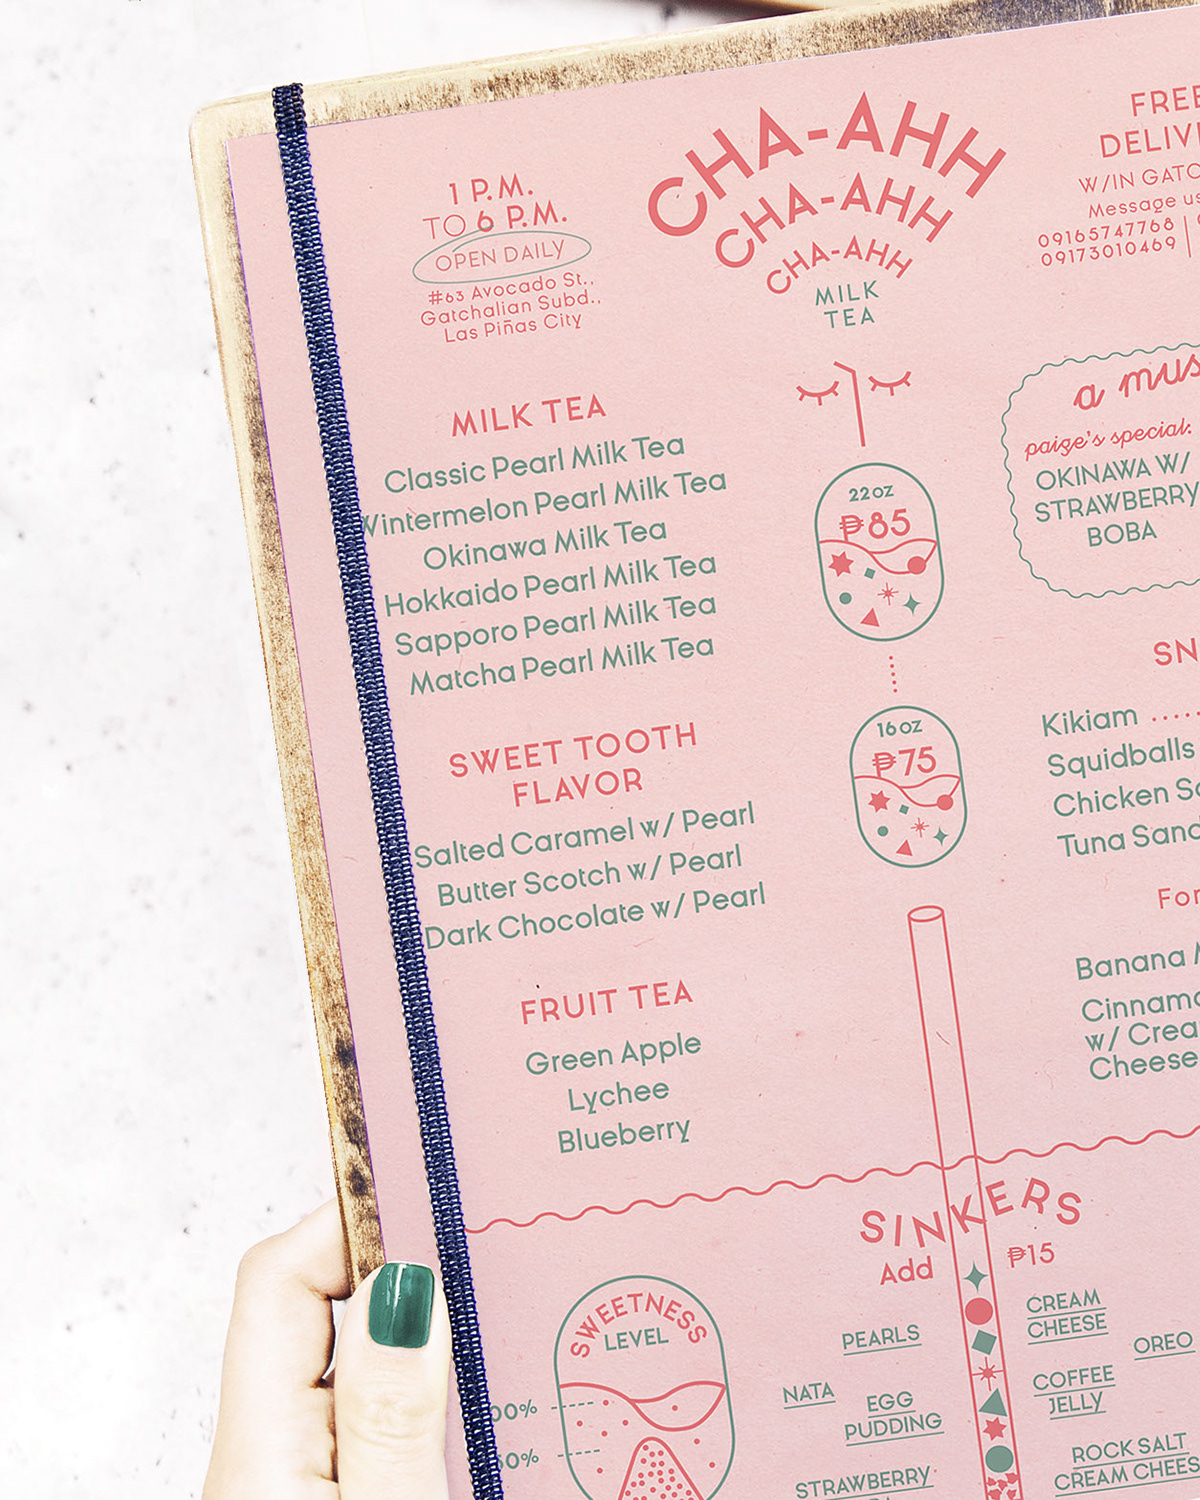 1 P.M.
TO 6 P.M.
OPEN DAILY
#63 Avocado St.,
Gatchalian Subd.,
Las Piñas City
CHA-AHH
CHA-AHH
CHA-AHH
MILK
TEA
FREE
W/IN
Message us
09165747768 |
09173010469 |
MILK TEA
Classic Pearl Milk Tea
Wintermelon Pearl Milk Tea
Okinawa Milk Tea
Hokkaido Pearl Milk Tea
Sapporo Pearl Milk Tea
Matcha Pearl Milk Tea
SWEET TOOTH
FLAVOR
Salted Caramel w/ Pearl
Butter Scotch w/ Pearl
Dark Chocolate w/ Pearl
FRUIT TEA
Green Apple
Lychee
Blueberry
22oz
₱85
16oz
₱75
a
paige's special:
OKINAWA W/
STRAWBERRY
BOBA
Kikiam
Squidballs
Chicken
Tuna
Banana
w/
Cheese
SINKERS
Add ₱15
PEARLS
NATA
EGG
PUDDING
STRAWBERRY
CREAM
CHEESE
OREO
COFFEE
JELLY
ROCK SALT
CREAM
SWEETNESS
LEVEL